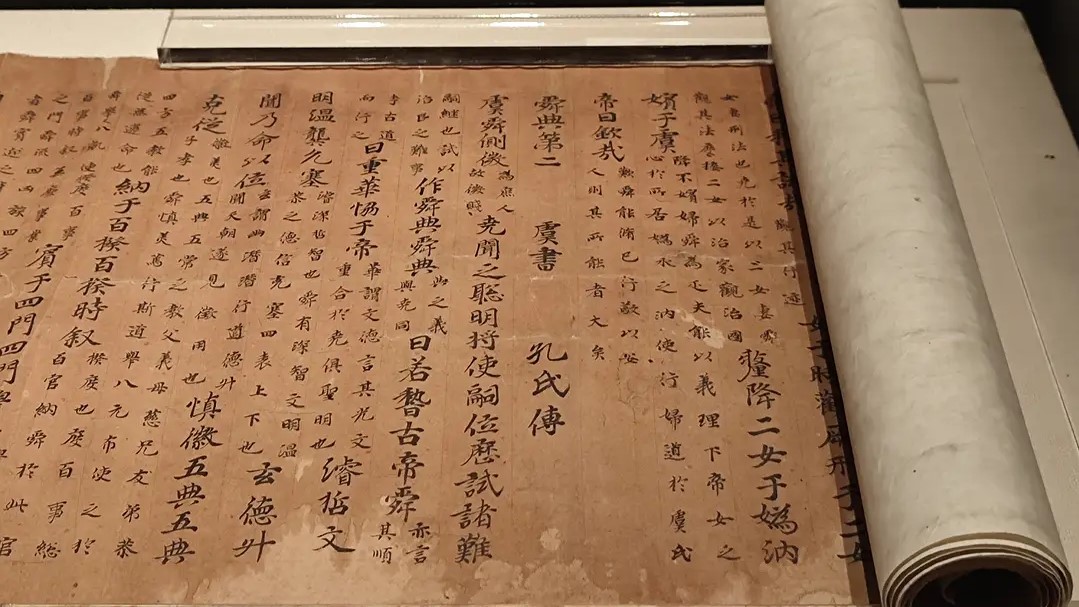 觀其行迹 女于時觀厥刑于二女
女妻刑法也堯於是以二女妻舜
觀其法度接二女以治家觀治國
釐降二女于嬀汭
嬪于虞
降下嬪婦舜為疋夫能以義理下帝女之
心於所居嬀水之汭使行婦道於虞氏
帝曰欽哉
歎舜能脩己行敬以安
人則其所能者大矣
舜典第二 虞書 孔氏傳
虞舜側微
為庶人
故微賤
堯聞之聰明將使嗣位歷試諸難
嗣繼也試以
治民之難事
作舜典舜典
此之義
與堯同
曰若稽古帝舜
亦言
其順
考古道
而行之
曰重華恊于帝
華謂文德言其光文
重合於堯俱聖明也
濬哲文
明温龔允塞
濬深哲智也舜有深智文明温
恭之德信充塞四表上下也
玄德升
聞乃命以位
玄謂幽潛潛行道德升
聞天朝遂見徵用也
慎徽五典五典
克從
徽美也五典五常之教父義母慈兄友弟恭
子孝也舜慎美篤行斯道舉八元布使之於
四方五教能
從無違命也
納于百揆百揆時叙
揆度也度百事總
百官納舜於此官
舜舉八凱使揆度
百事時叙
賓于四門四門